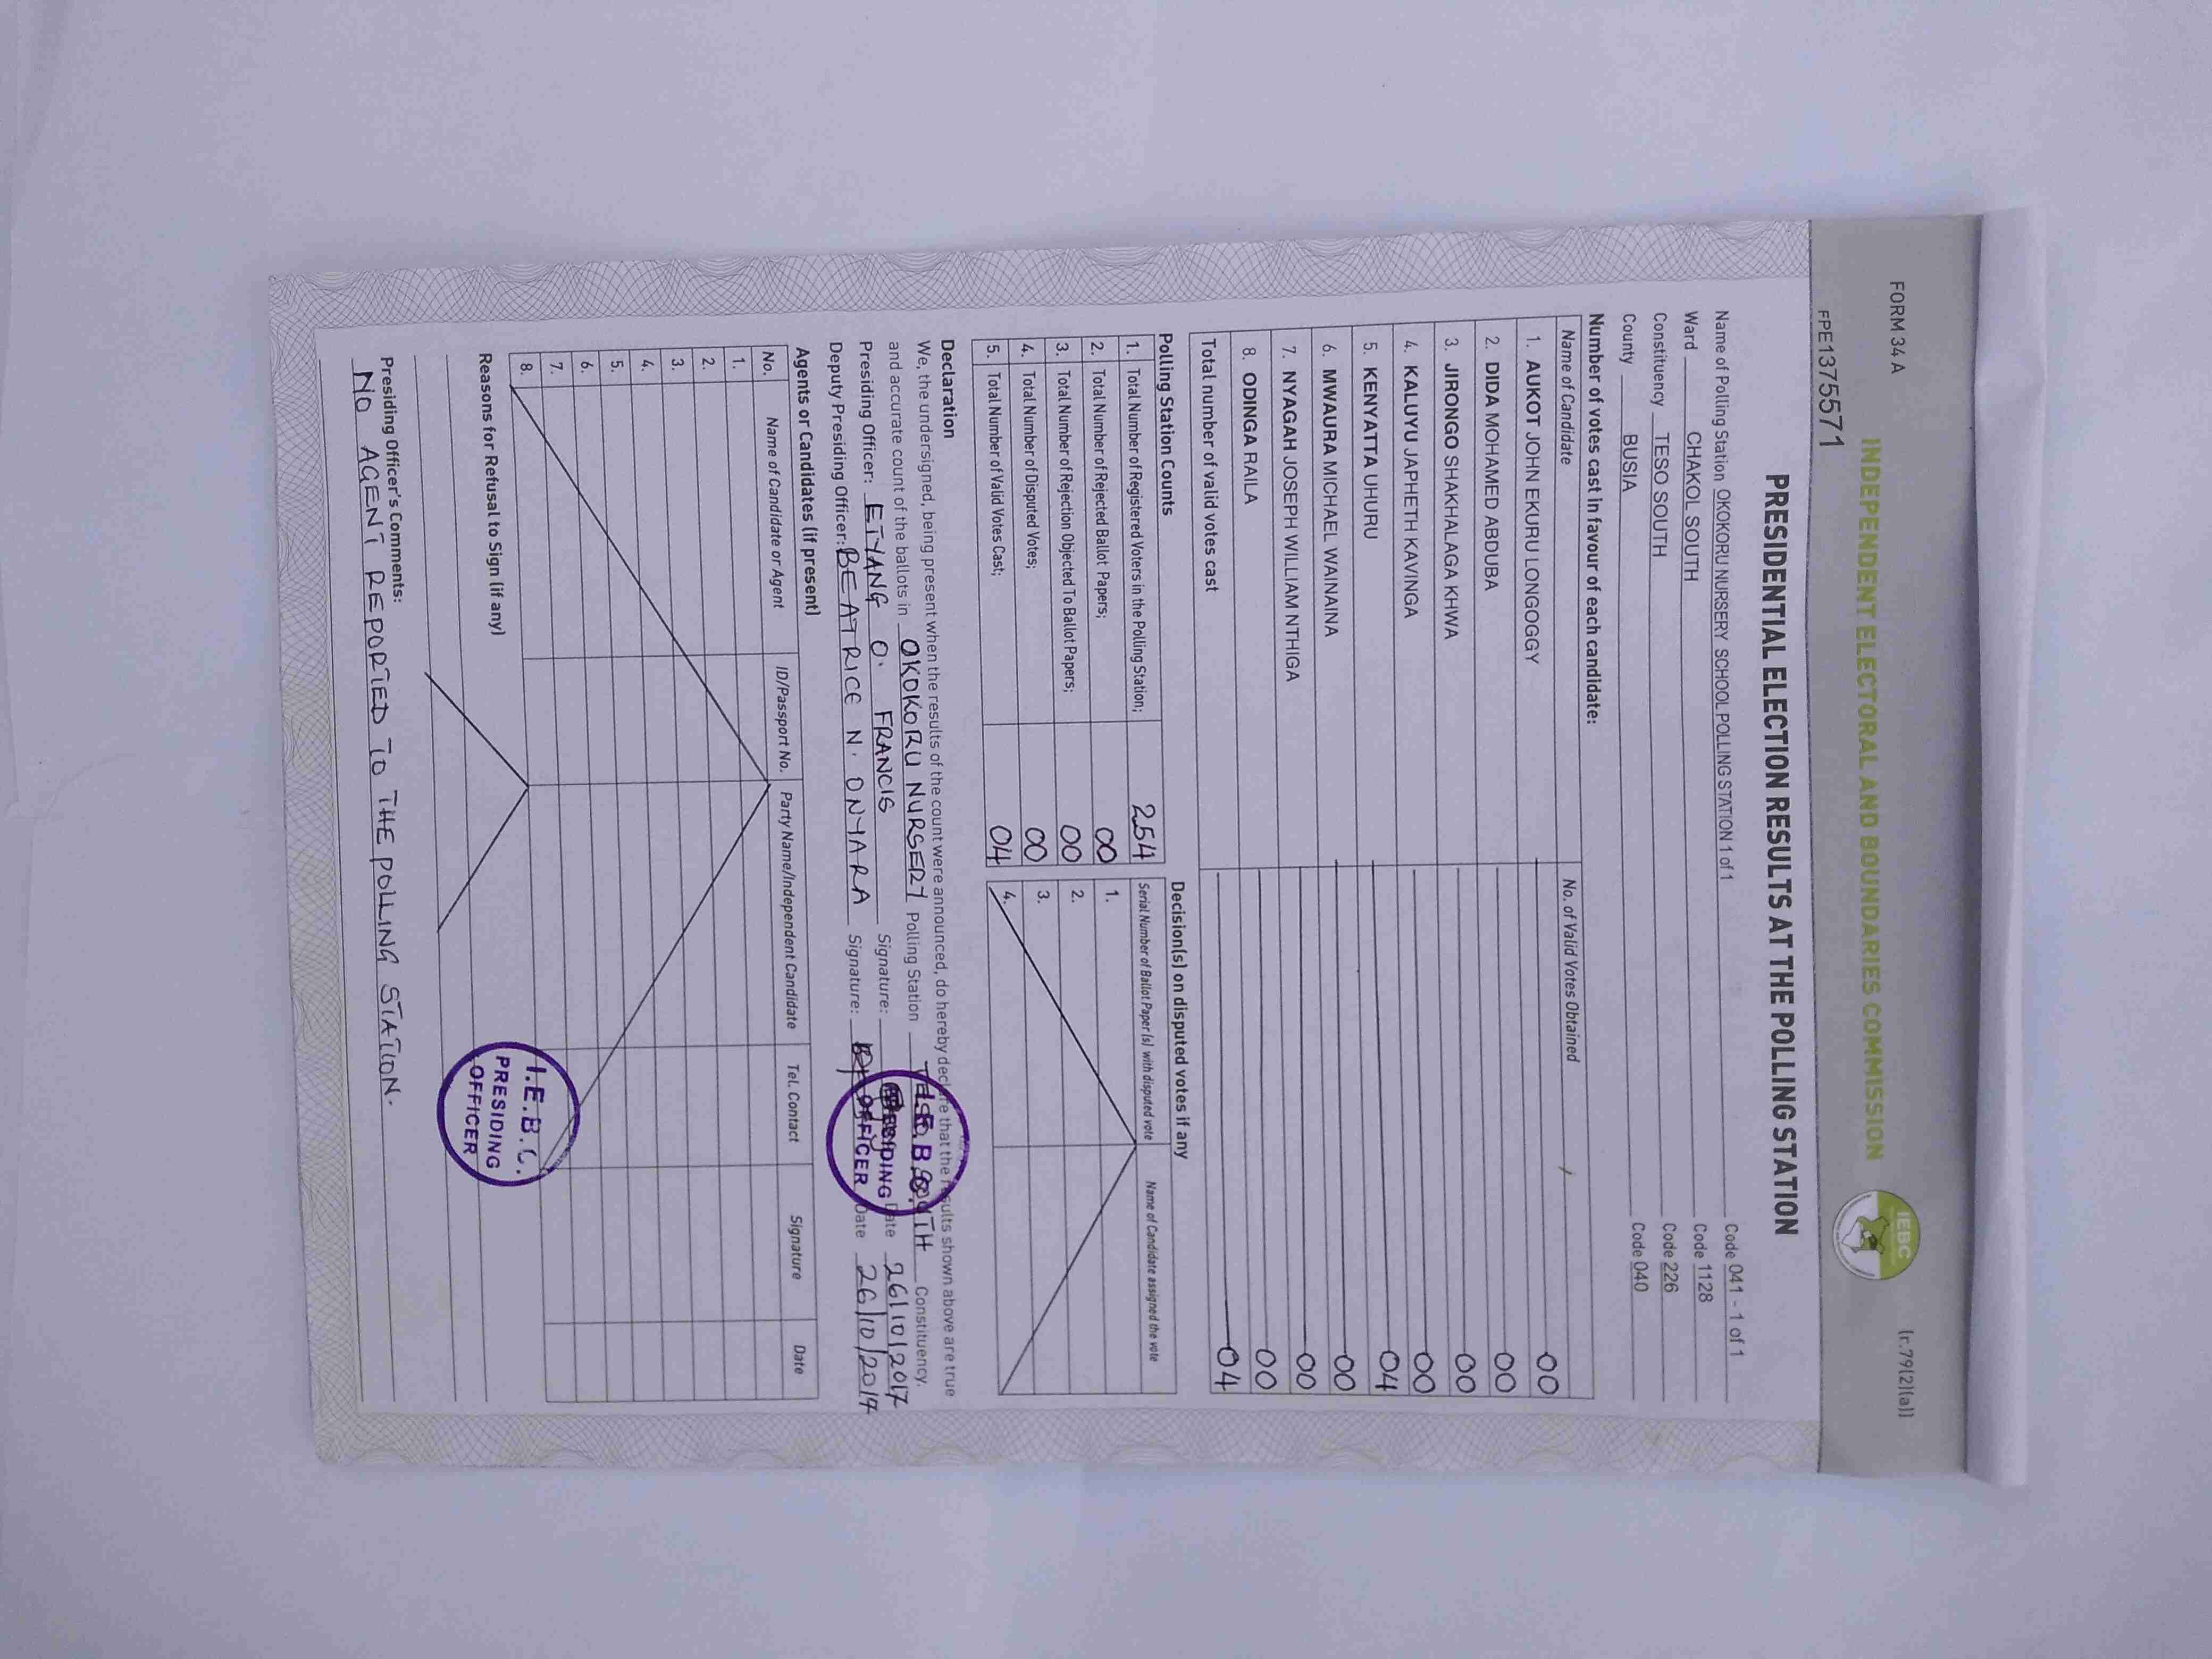 FORM 34 A
(r.79(2)(a))
INDEPENDENT ELECTORAL AND BOUNDARIES COMMISSION
IEBC
FPE1375571
PRESIDENTIAL ELECTION RESULTS AT THE POLLING STATION
Name of Polling Station OKOKORU NURSERY SCHOOL POLLING STATION 1 of 1 Code 041 - 1 of 1
Ward CHAKOL SOUTH Code 1128
Constituency TESO SOUTH Code 226
County BUSIA Code 040
Number of votes cast in favour of each candidate:
Name of Candidate No. of Valid Votes Obtained
1. AUKOT JOHN EKURU LONGOGGY 00
2. DIDA MOHAMED ABDUBA 00
3. JIRONGO SHAKHALAGA KHWA 00
4. KALUYU JAPHETH KAVINGA 00
5. KENYATTA UHURU 04
6. MWAURA MICHAEL WAINAINA 00
7. NYAGAH JOSEPH WILLIAM NTHIGA 00
8. ODINGA RAILA 00
Total number of valid votes cast 04
Polling Station Counts
1. Total Number of Registered Voters in the Polling Station; 254
2. Total Number of Rejected Ballot Papers; 00
3. Total Number of Rejection Objected To Ballot Papers; 00
4. Total Number of Disputed Votes; 00
5. Total Number of Valid Votes Cast; 04
Decision(s) on disputed votes if any
Serial Number of Ballot Paper(s) with disputed vote Name of Candidate assigned the vote
1.
2.
3.
4.
Declaration
We, the undersigned, being present when the results of the count were announced, do hereby declare that the results shown above are true
and accurate count of the ballots in OKOKORU NURSERY Polling Station TESO SOUTH Constituency.
Presiding Officer: ETYANG O. FRANCIS Signature: Date 26/10/2017
Deputy Presiding Officer: BEATRICE N. ONYARA Signature: Date 26/10/2017
I.E.B.C.
PRESIDING
OFFICER
Agents or Candidates (if present)
No. Name of Candidate or Agent ID/Passport No. Party Name/Independent Candidate Tel. Contact Signature Date
1.
2.
3.
4.
5.
6.
7.
8.
Reasons for Refusal to Sign (if any)
I.E.B.C.
PRESIDING
OFFICER
Presiding Officer's Comments:
NO AGENT REPORTED TO THE POLLING STATION.